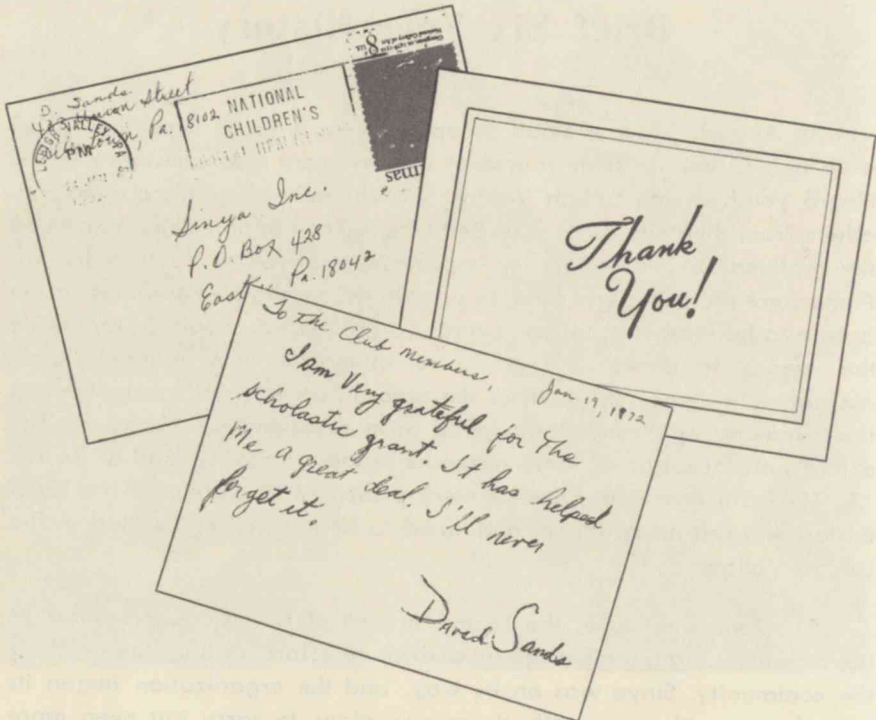 D. Sands
Union Street
Pa. 18102
LEHIGH VALLEY PA
PM
NATIONAL
CHILDREN'S
8
mas
Sinya Inc.
P.O. Box 428
East Pa. 18042
Thank
You!
To the Club Members,
Jan 19, 1972
I am Very grateful for The
scholastic grant. It has helped
Me a great deal. I'll never
forget it.
David Sands